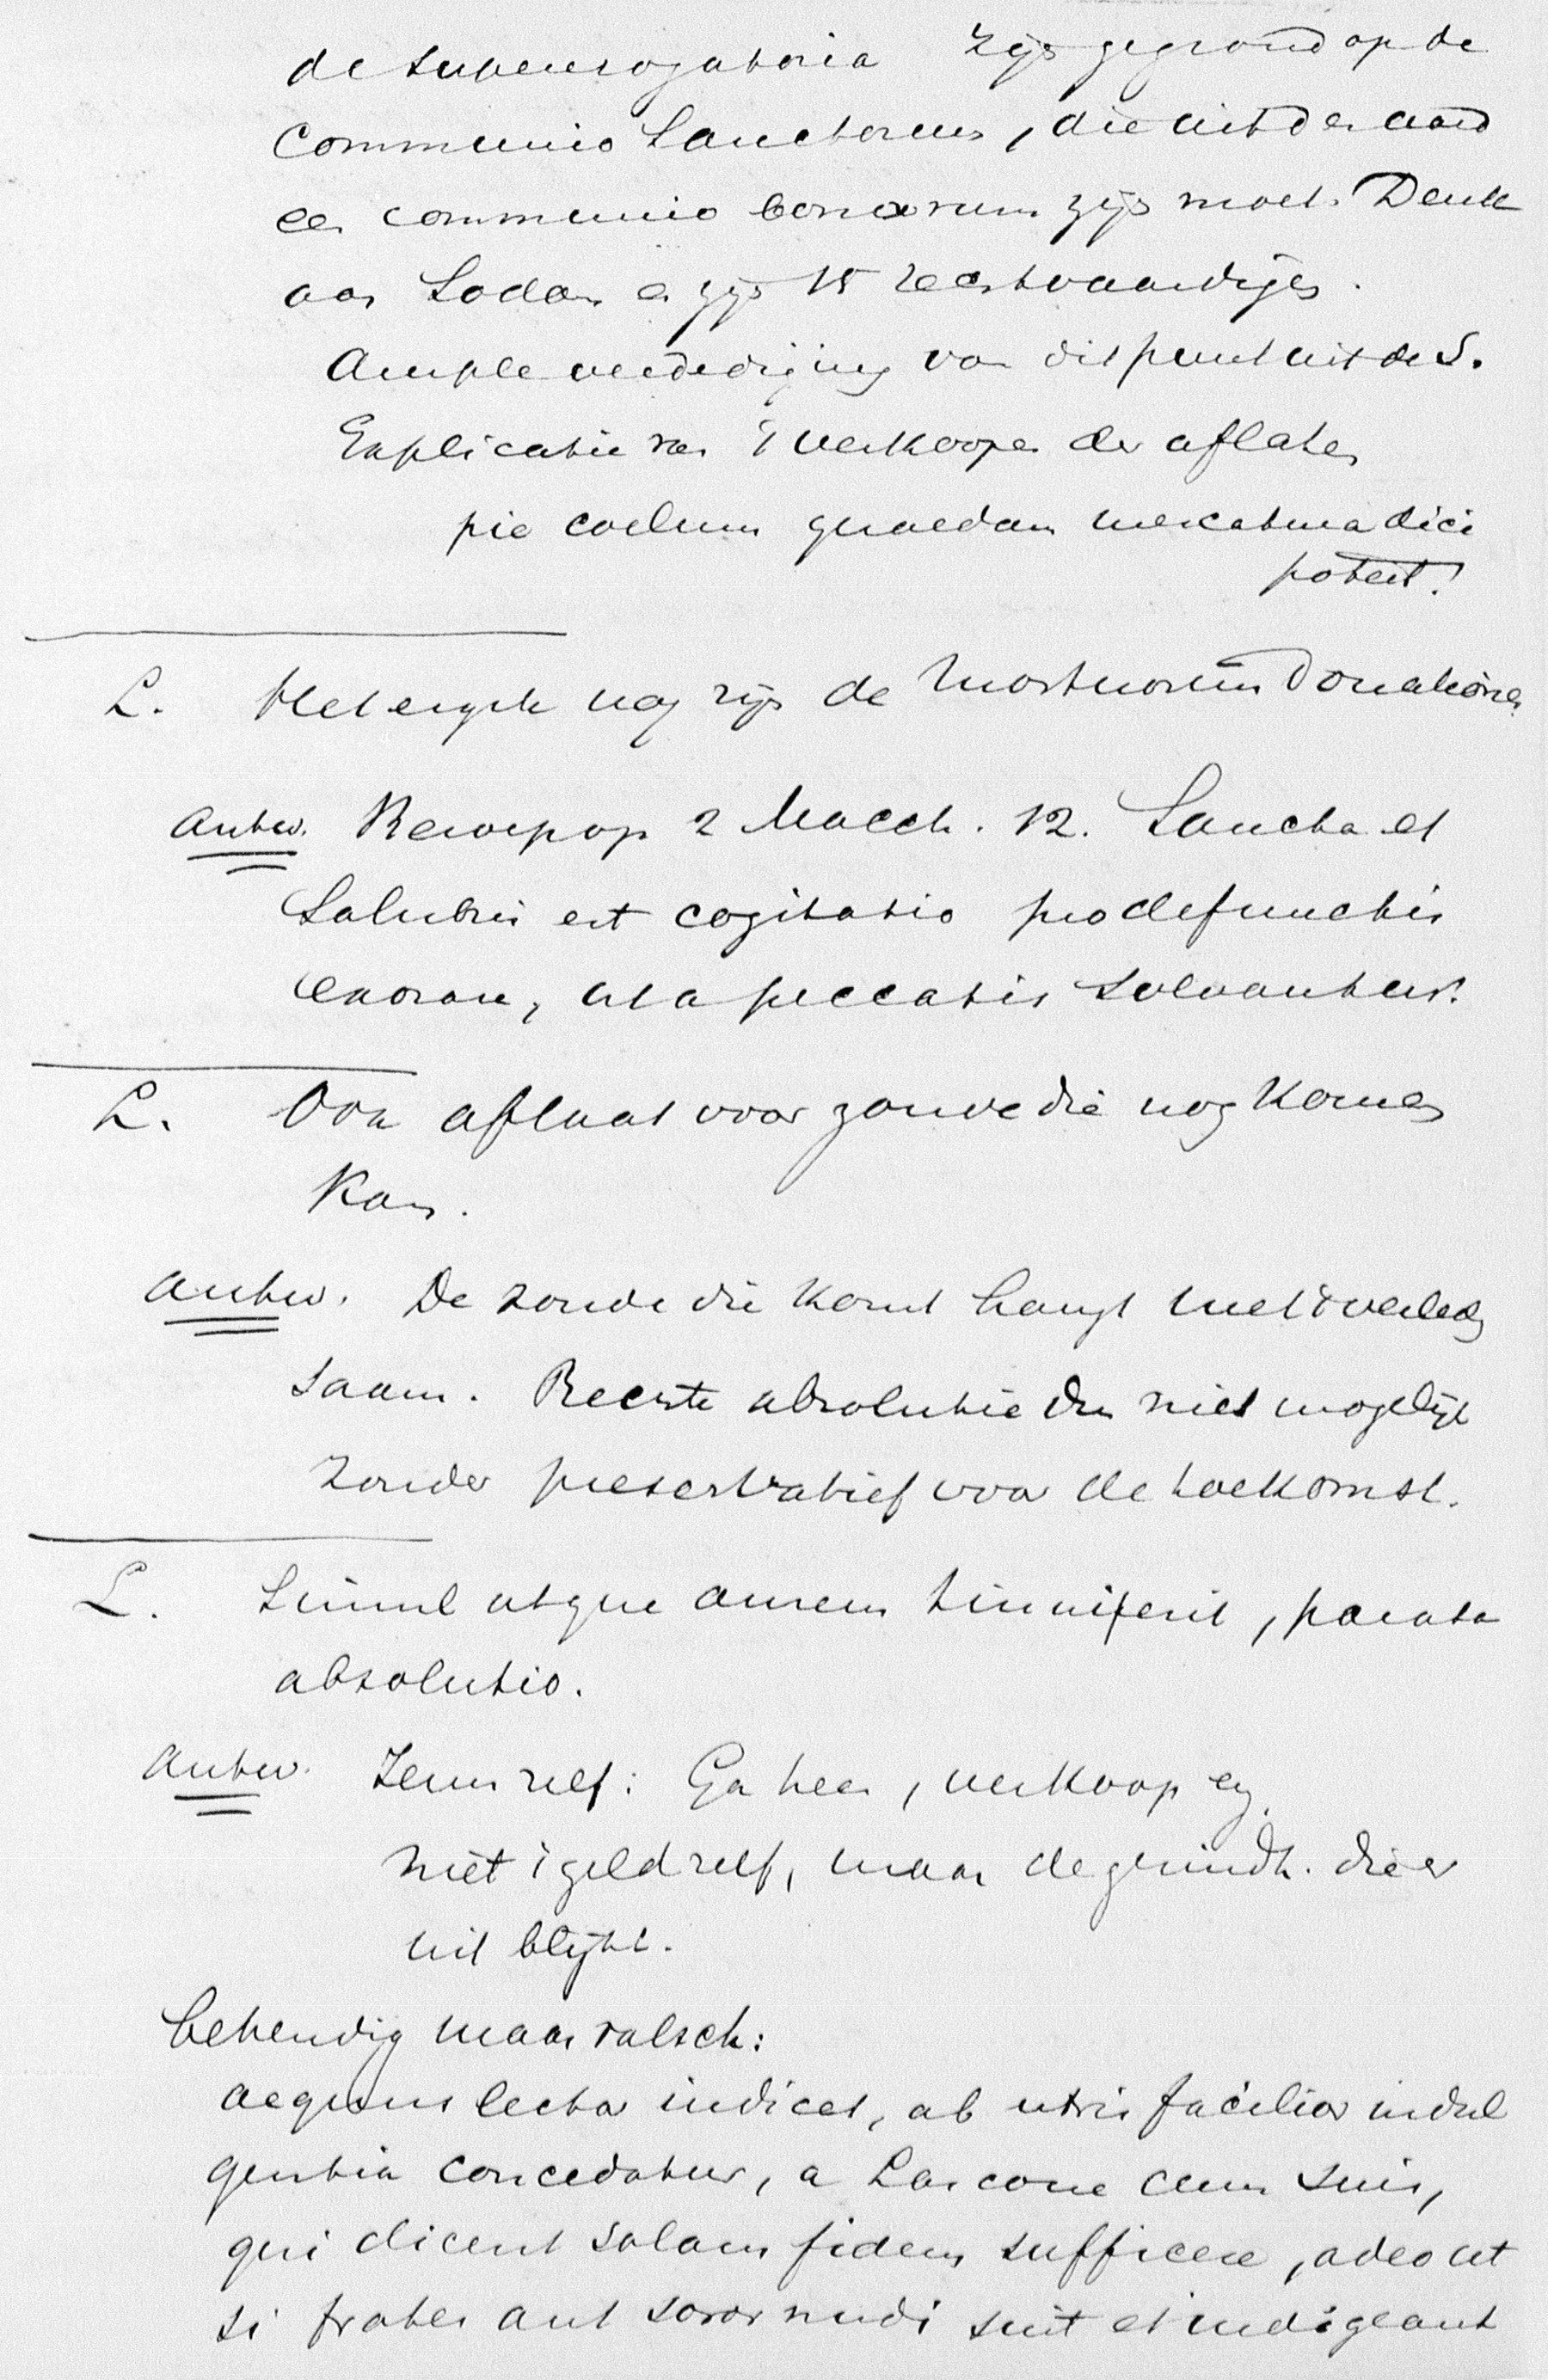 de supererogatoria zijn gegrond op de
Communio Sanctorum, die uit den aard
een communio bonorum zijn moet. Denk
aan Sodom en zijn 15 rechtvaardigen.
Ample verdediging van dit punt uit de S.
Explicatie van 't verkoopen der aflaten
pie coelum quaedam mercatura dici
potest!
L. Het ergste nog zijn de mortuorum donationes
Antw. Beroep op 2 Macch. 12. Sancta et
Salubris est cogitatio pro defunctis
exorare, ut a peccatis solvantur.
L. Ook aflaat voor zonde die nog komen
kan.
Antw. De zonde die komt hangt met 't verleden
saam. Rechte absolutie dus niet mogelijk
zonder preservatief voor de toekomst.
L. Simul atque aurem tinniferit, parata
absolutio.
Antw. Jezus zelf: Ga heen, verkoop en
niet 't geld zelf, maar de gezindh. die er
uit blijkt.
behendig maar valsch:
aequus lector iudicet, ab utris facilior indul
gentia concedatur, a Lascone cum suis,
qui dicent solam fidem sufficere, adeo ut
si frater aut soror nudi sint et indigeant